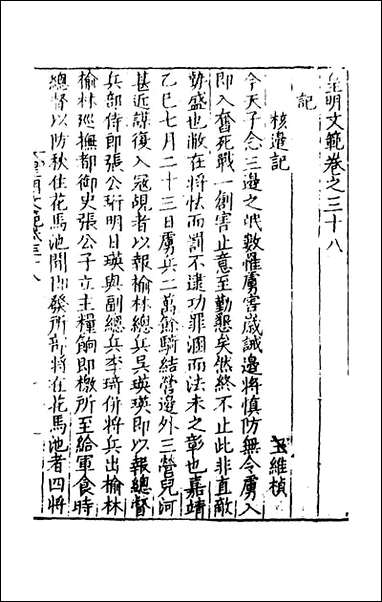 皇明文範卷之三十八
記
核邊記
王維楨
今天子念三邊之氓數罹虜害歲誡邊將慎防無令虜入
即入奮死戰一創害止意至勤懇矣然終不止此非直敵
勍盛也敝在將怯而罰不逮功罪溷而法未之彰也嘉靖
乙巳七月二十三日虜兵二萬餘騎結營邊外三營兒河
甚近謀復入寇覘者以報榆林總兵吳瑛瑛即以報總督
兵部侍郎張公珩明日瑛與副總兵李琦併將兵出榆林
榆林巡撫都御史張公子立主糧餉即檄所至給軍食時
總督以防秋住花馬池聞即發所部將在花馬池者四將
皇明文範卷三十八